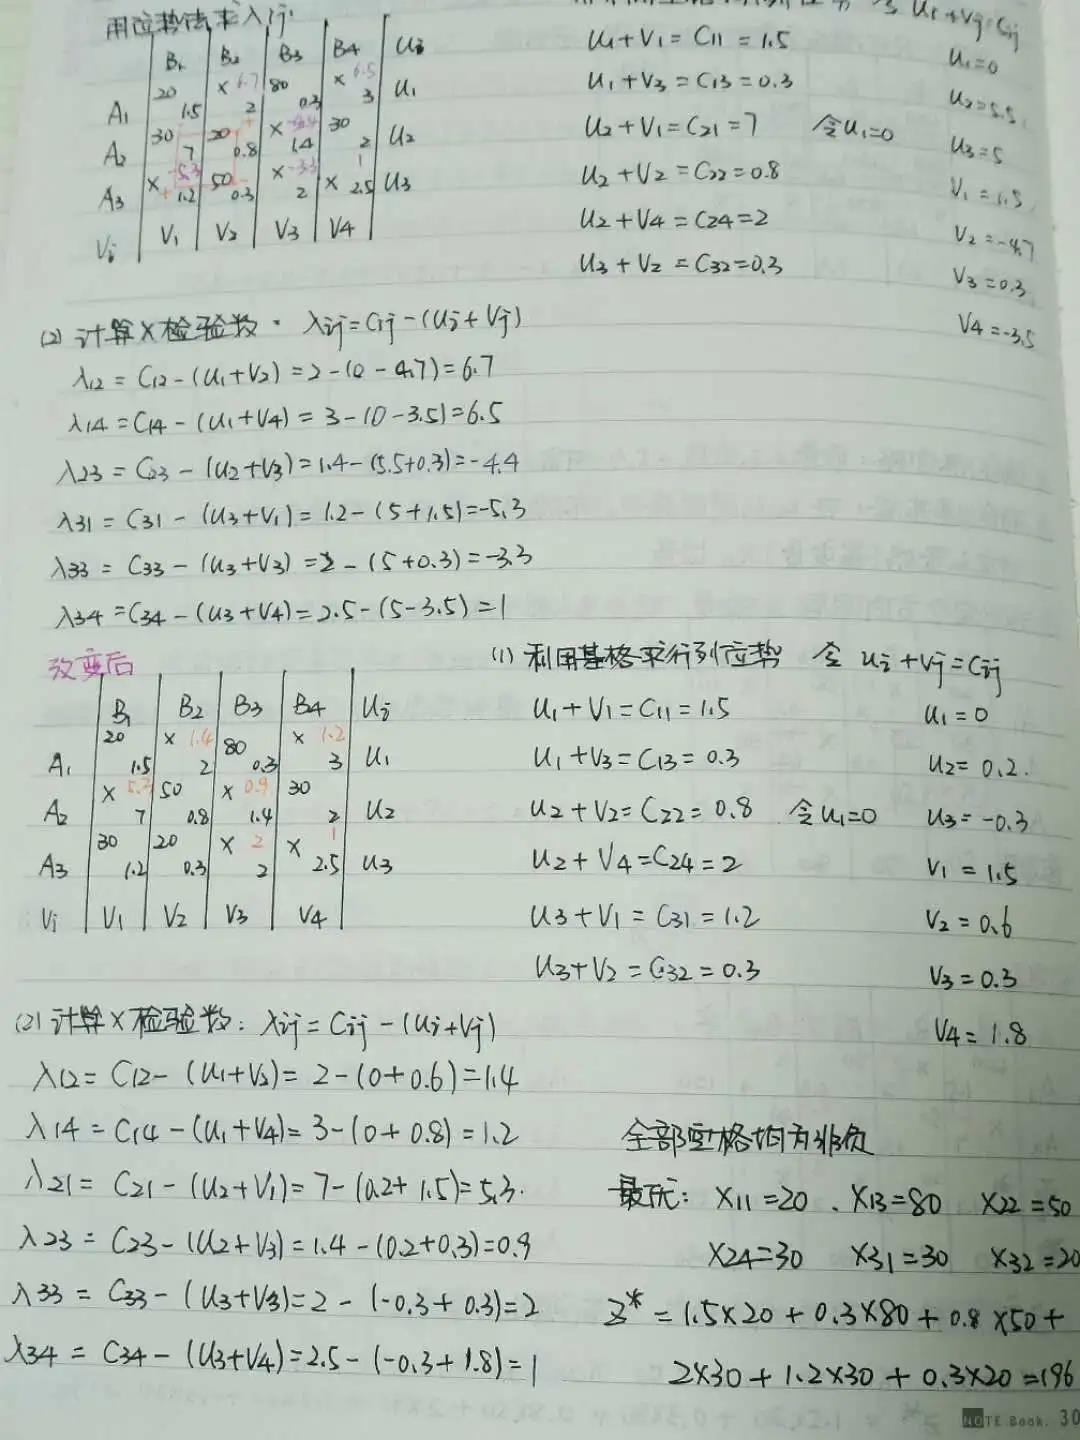 用位势法求λij
令 Ui+Vj=Cij
B1 B2 B3 B4 Ui
A1 20 1.5 × 6.7 2 80 0.3 × 6.5 3 U1
A2 30 7 20 0.8 × -4.4 1.4 30 2 U2
A3 × -5.3 1.2 50 0.3 × -3.3 2 × 1 2.5 U3
Vj V1 V2 V3 V4
U1+V1=C11=1.5
U1+V3=C13=0.3
U2+V1=C21=7 令U1=0
U2+V2=C22=0.8
U2+V4=C24=2
U3+V2=C32=0.3
U1=0
U2=5.5
U3=5
V1=1.5
V2=-4.7
V3=0.3
V4=-3.5
(2) 计算×检验数. λij=Cij-(Ui+Vj)
λ12=C12-(U1+V2)=2-(0-4.7)=6.7
λ14=C14-(U1+V4)=3-(0-3.5)=6.5
λ23=C23-(U2+V3)=1.4-(5.5+0.3)=-4.4
λ31=C31-(U3+V1)=1.2-(5+1.5)=-5.3
λ33=C33-(U3+V3)=2-(5+0.3)=-3.3
λ34=C34-(U3+V4)=2.5-(5-3.5)=1
改变后
B1 B2 B3 B4 Ui
A1 20 1.5 × 1.4 2 80 0.3 × 1.2 3 U1
A2 × 5.3 7 50 0.8 × 0.9 1.4 30 2 U2
A3 30 1.2 20 0.3 × 2 2 × 1 2.5 U3
Vj V1 V2 V3 V4
(1) 利用基格求行列位势 令 Ui+Vj=Cij
U1+V1=C11=1.5
U1+V3=C13=0.3
U2+V2=C22=0.8 令U1=0
U2+V4=C24=2
U3+V1=C31=1.2
U3+V2=C32=0.3
U1=0
U2=0.2.
U3=-0.3
V1=1.5
V2=0.6
V3=0.3
V4=1.8
(2) 计算×检验数: λij=Cij-(Ui+Vj)
λ12=C12-(U1+V2)=2-(0+0.6)=1.4
λ14=C14-(U1+V4)=3-(0+0.8)=1.2
λ21=C21-(U2+V1)=7-(0.2+1.5)=5.3.
λ23=C23-(U2+V3)=1.4-(0.2+0.3)=0.9
λ33=C33-(U3+V3)=2-(-0.3+0.3)=2
λ34=C34-(U3+V4)=2.5-(-0.3+1.8)=1
全部空格均为非负
最优: X11=20. X13=80 X22=50
X24=30 X31=30 X32=20
Z*=1.5×20+0.3×80+0.8×50+
2×30+1.2×30+0.3×20=196
NOTE Book. 30